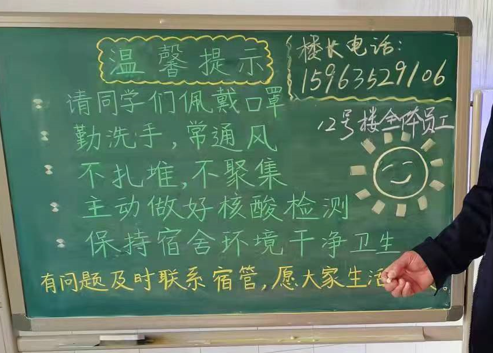 温馨提示
楼长电话:
15963529106
请同学们佩戴口罩
12号楼全体员工
勤洗手,常通风
不扎堆,不聚集
主动做好核酸检测
保持宿舍环境干净卫生
有问题及时联系宿管,愿大家生活